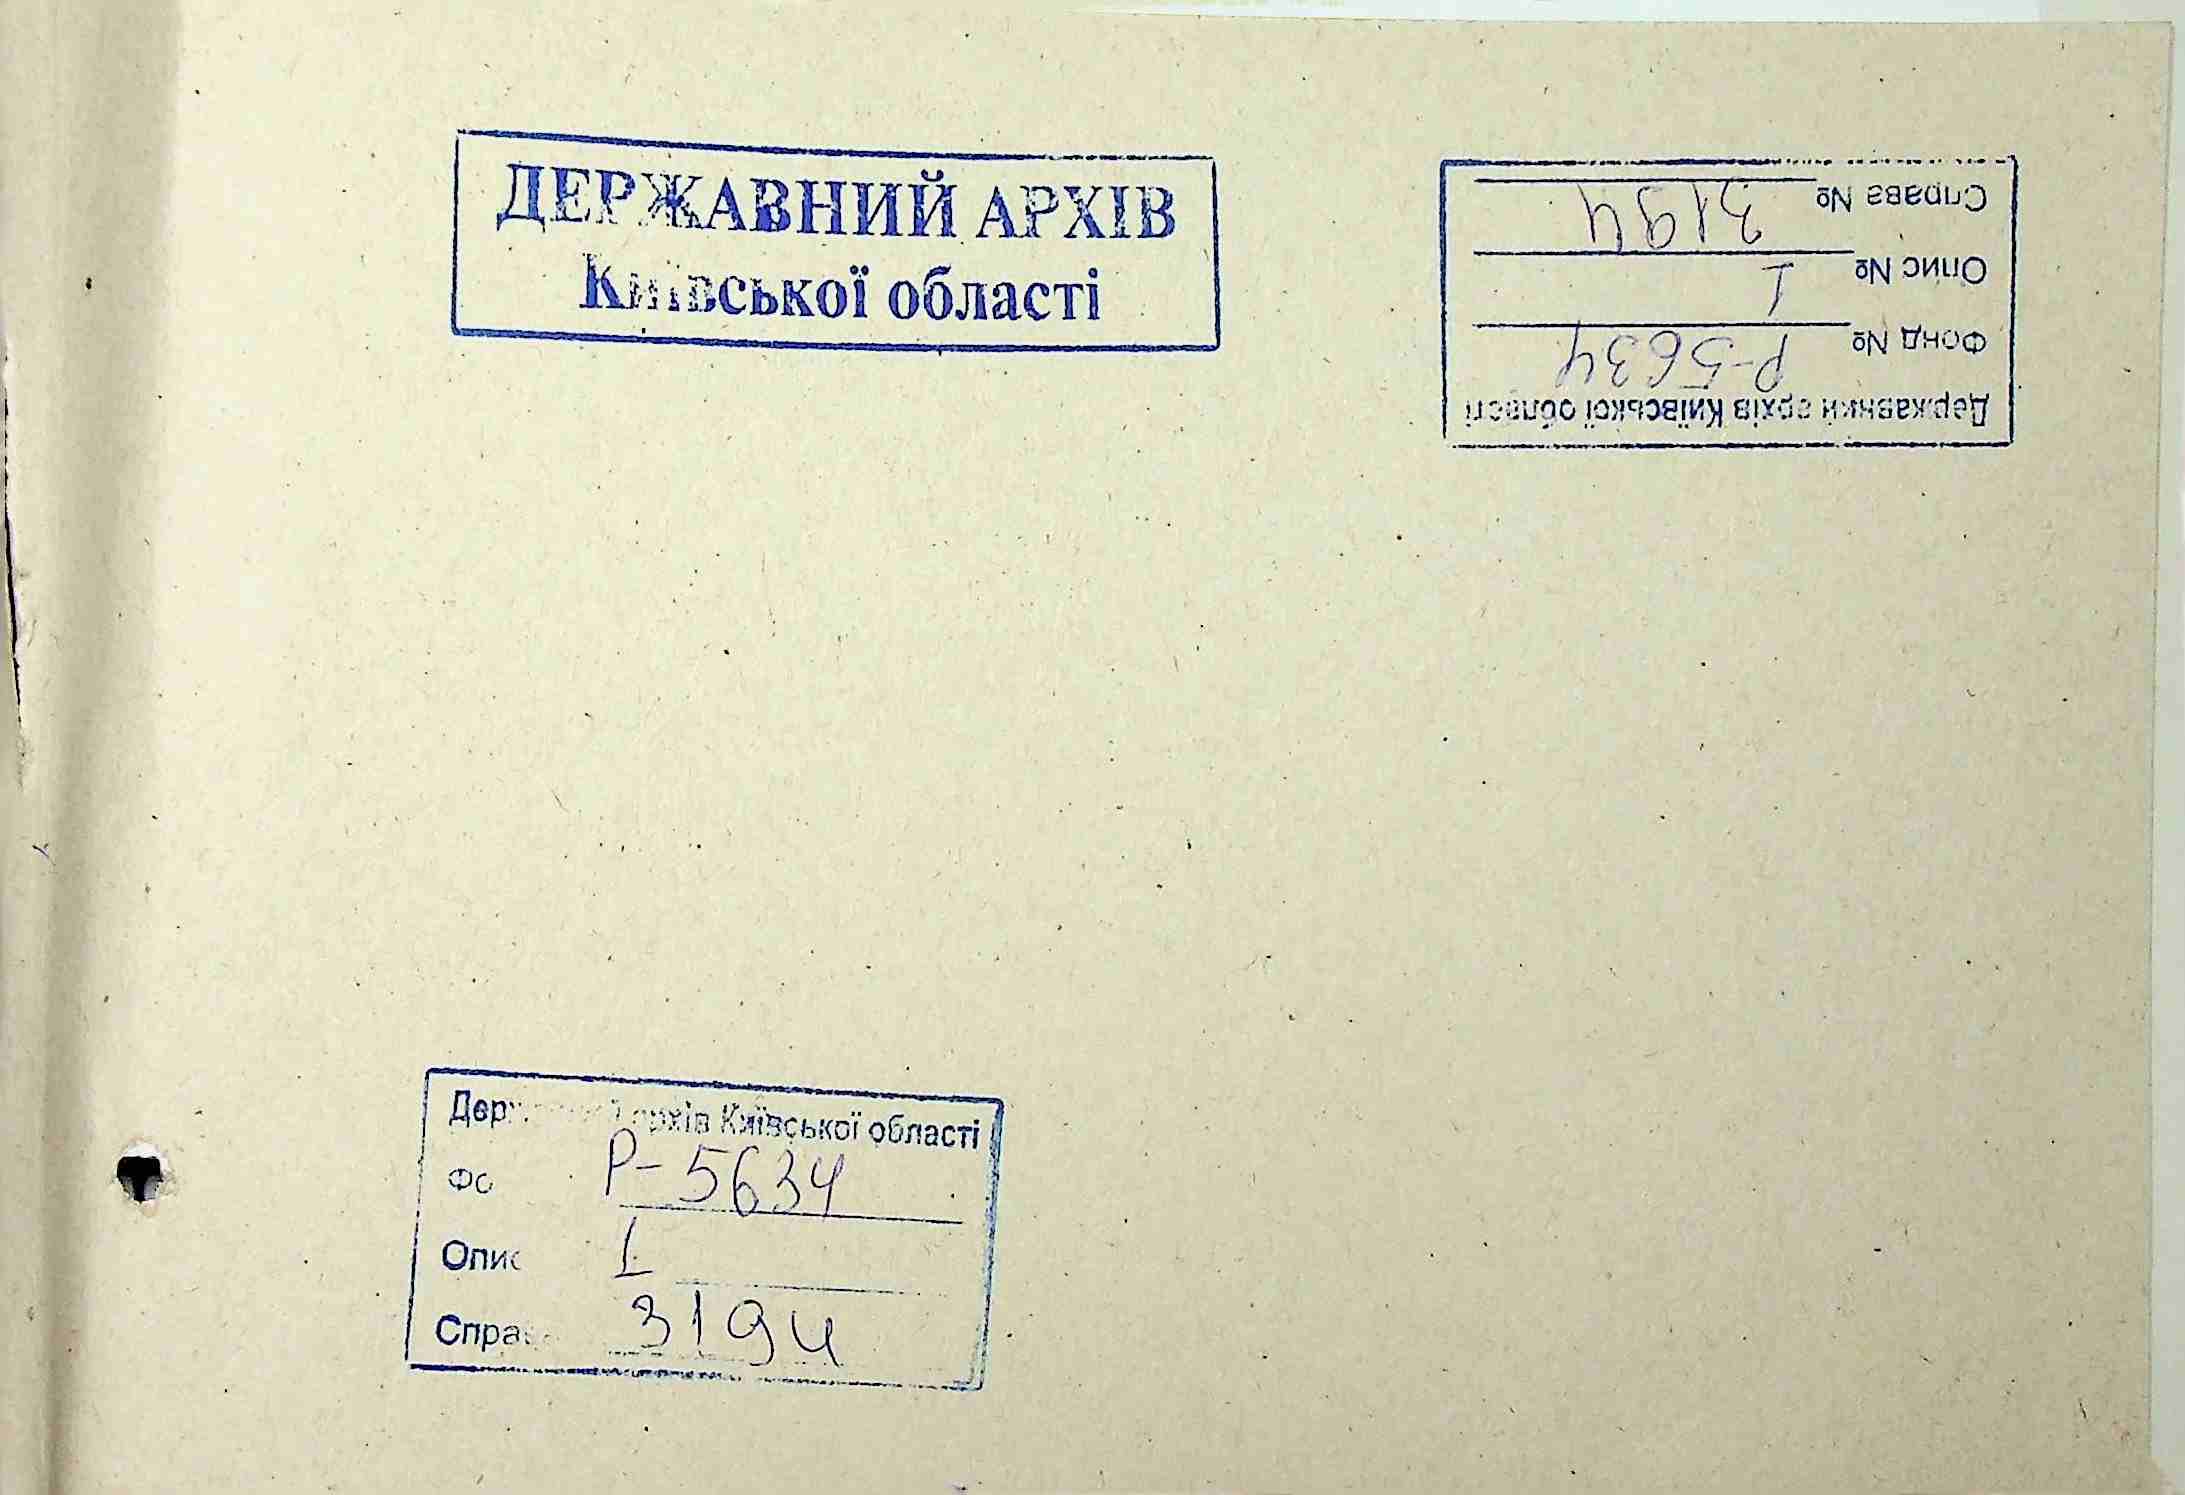 ДЕРЖАВНИЙ АРХІВ
Київської області
Державний архів Київської області
Фонд № Р-5634
Опис № 1
Справа № 3194
Державний архів Київської області
Фо Р-5634
Опис 1
Справа 3194